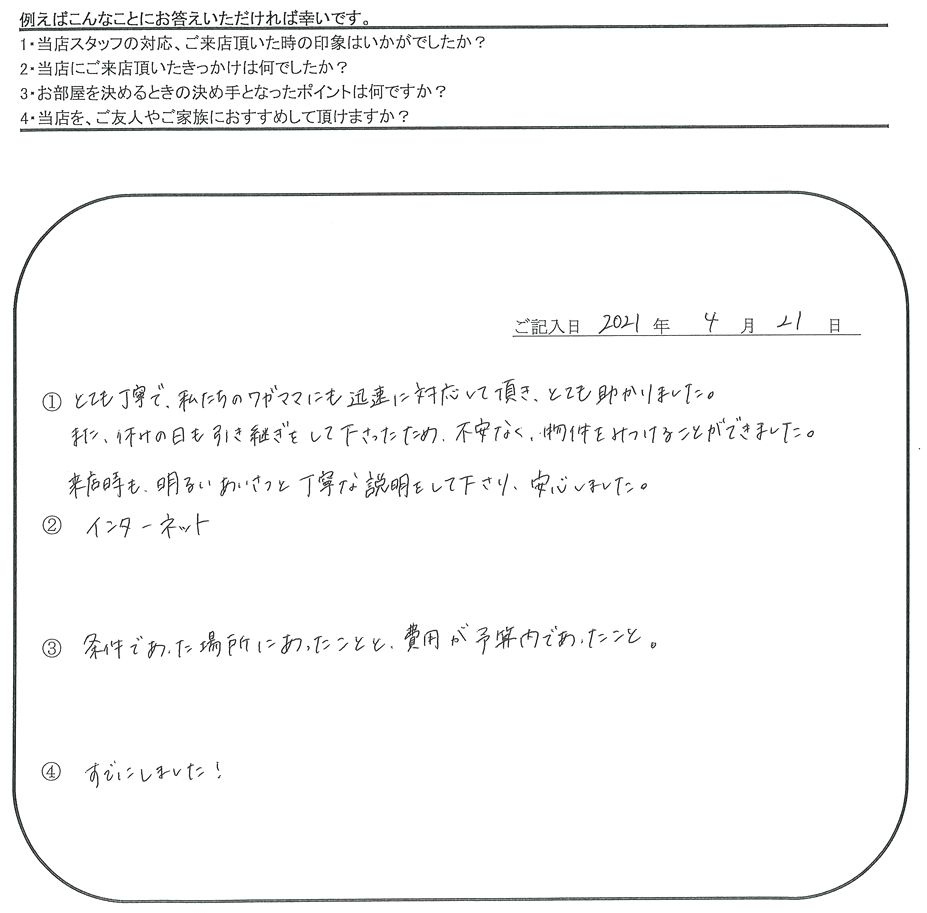 例えばこんなことにお答えいただければ幸いです。
1・当店スタッフの対応、ご来店頂いた時の印象はいかがでしたか？
2・当店にご来店頂いたきっかけは何でしたか？
3・お部屋を決めるときの決め手となったポイントは何ですか？
4・当店を、ご友人やご家族におすすめして頂けますか？
ご記入日 2021 年 4 月 21 日
① とても丁寧で、私たちのワガママにも迅速に対応して頂き、とても助かりました。
また、休みの日も引き継ぎをして下さったため、不安なく、物件をみつけることができました。
来店時も、明るいあいさつと丁寧な説明をして下さり、安心しました。
② インターネット
③ 条件であった場所にあったことと、費用が予算内であったこと。
④ すでにしました！